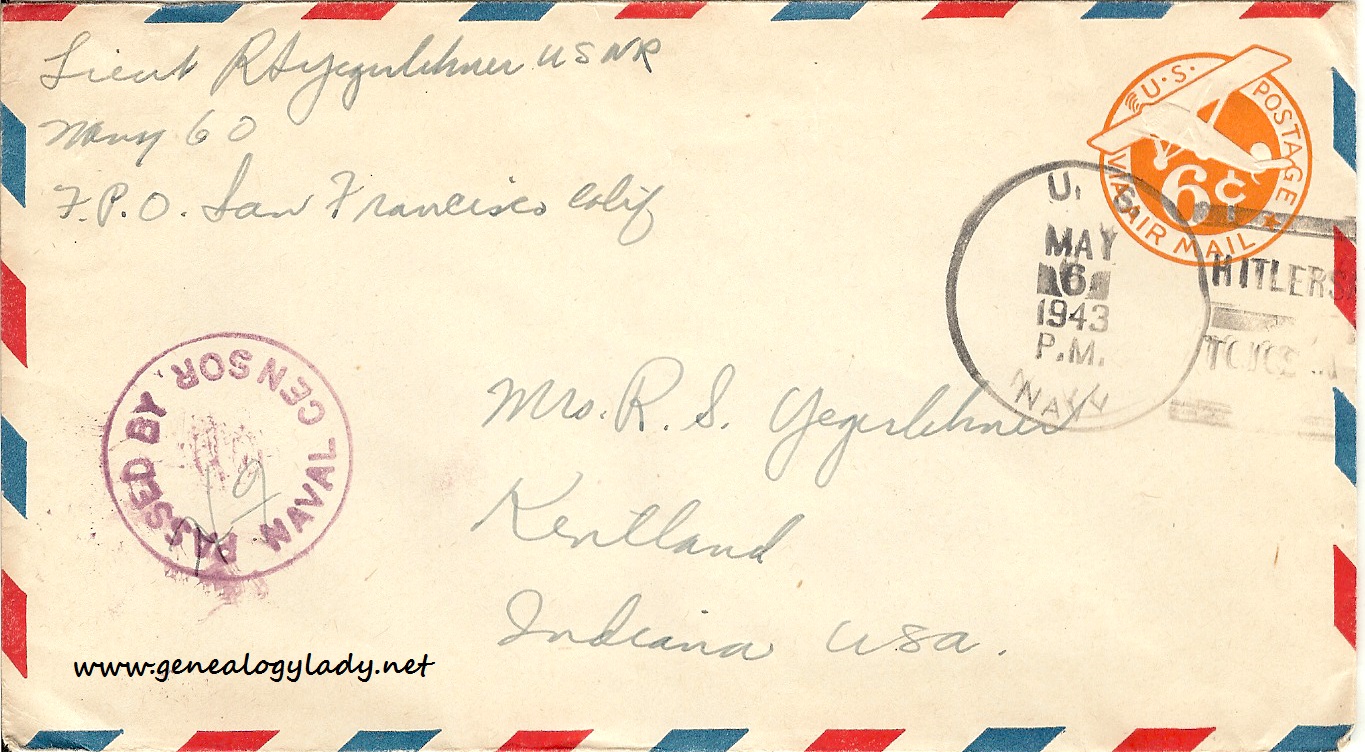 Lieut R S Yegerlehner USNR
Navy 60
F.P.O. San Francisco Calif
U.S. POSTAGE
6¢
VIA AIR MAIL
U.
MAY
6
1943
P.M.
NAVY
HITLERS
PASSED BY NAVAL CENSOR
Mrs. R. S. Yegerlehner
Kentland
Indiana USA.
www.genealogylady.net